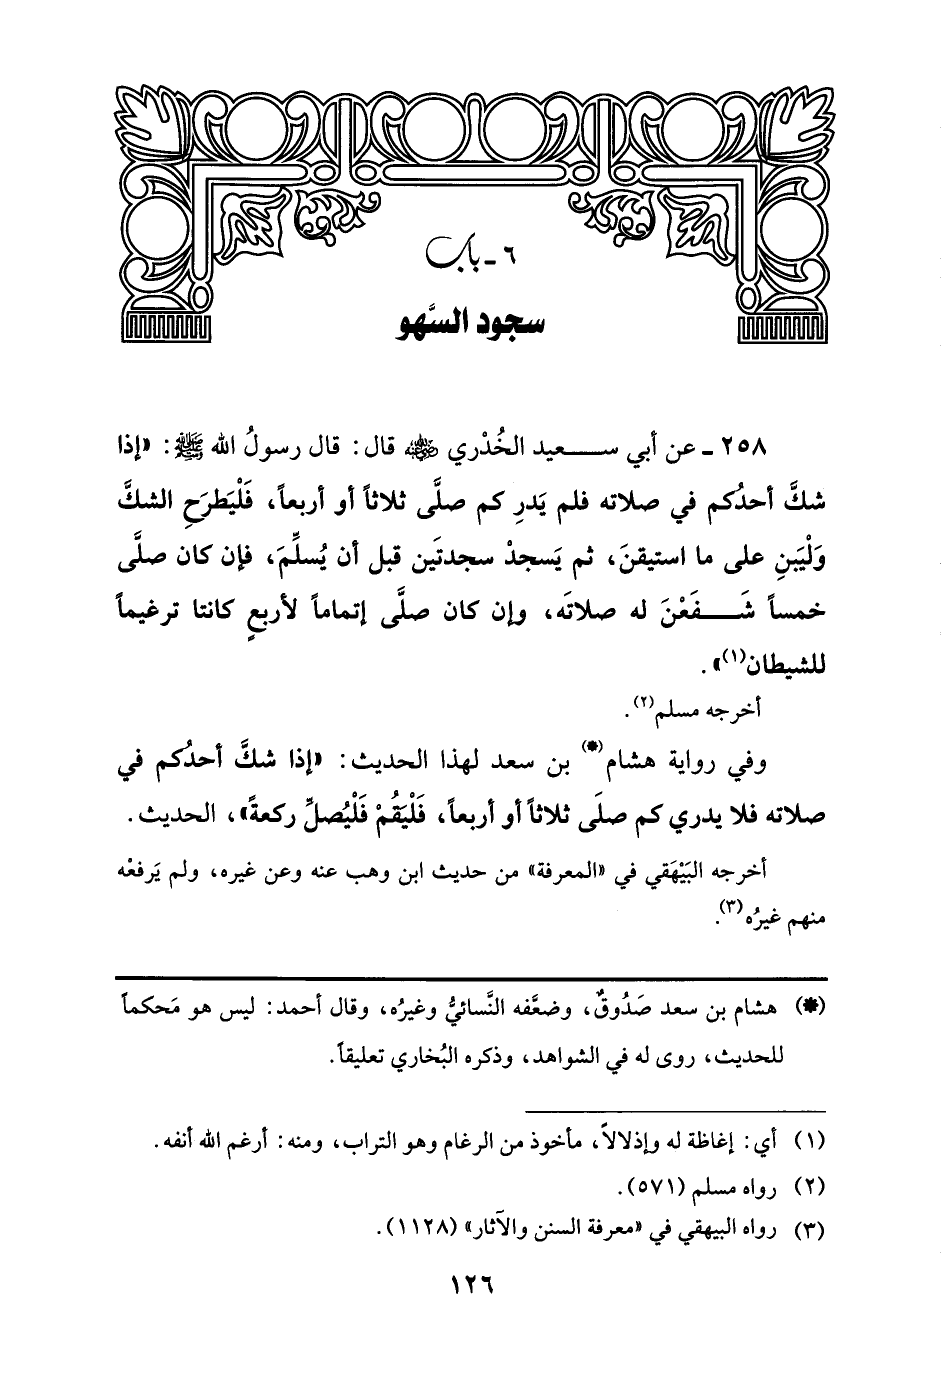 ٦ - باب
سجود السَّهو
٢٥٨ - عن أبي سـعيد الخُدْري رضي الله عنه قال: قال رسولُ الله ﷺ: «إذا
شكَّ أحدُكم في صلاته فلم يَدرِ كم صلَّى ثلاثاً أو أربعاً، فَلْيَطرَحِ الشكَّ
وَلْيَبنِ على ما استيقنَ، ثم يَسجدْ سجدتَين قبل أن يُسلِّمَ، فإن كان صلَّى
خمساً شَـفَعْنَ له صلاتَه، وإن كان صلَّى إتماماً لأربعٍ كانتا ترغيماً
للشيطان(١)».
أخرجه مسلم(٢).
وفي رواية هشام(*) بن سعد لهذا الحديث: «إذا شكَّ أحدُكم في
صلاته فلا يدري كم صلَى ثلاثاً أو أربعاً، فَلْيَقُمْ فَلْيُصلِّ ركعةً»، الحديث.
أخرجه البَيْهَقي في «المعرفة» من حديث ابن وهب عنه وعن غيره، ولم يَرفعْه
منهم غيرُه(٣).
(*) هشام بن سعد صَدُوقٌ، وضعَّفه النَّسائيُّ وغيرُه، وقال أحمد: ليس هو مَحكماً
للحديث، روى له في الشواهد، وذكره البُخاري تعليقاً.
(١) أي: إغاظة له وإذلالاً، مأخوذ من الرغام وهو التراب، ومنه: أرغم الله أنفه.
(٢) رواه مسلم (٥٧١).
(٣) رواه البيهقي في «معرفة السنن والآثار» (١١٢٨).
١٢٦